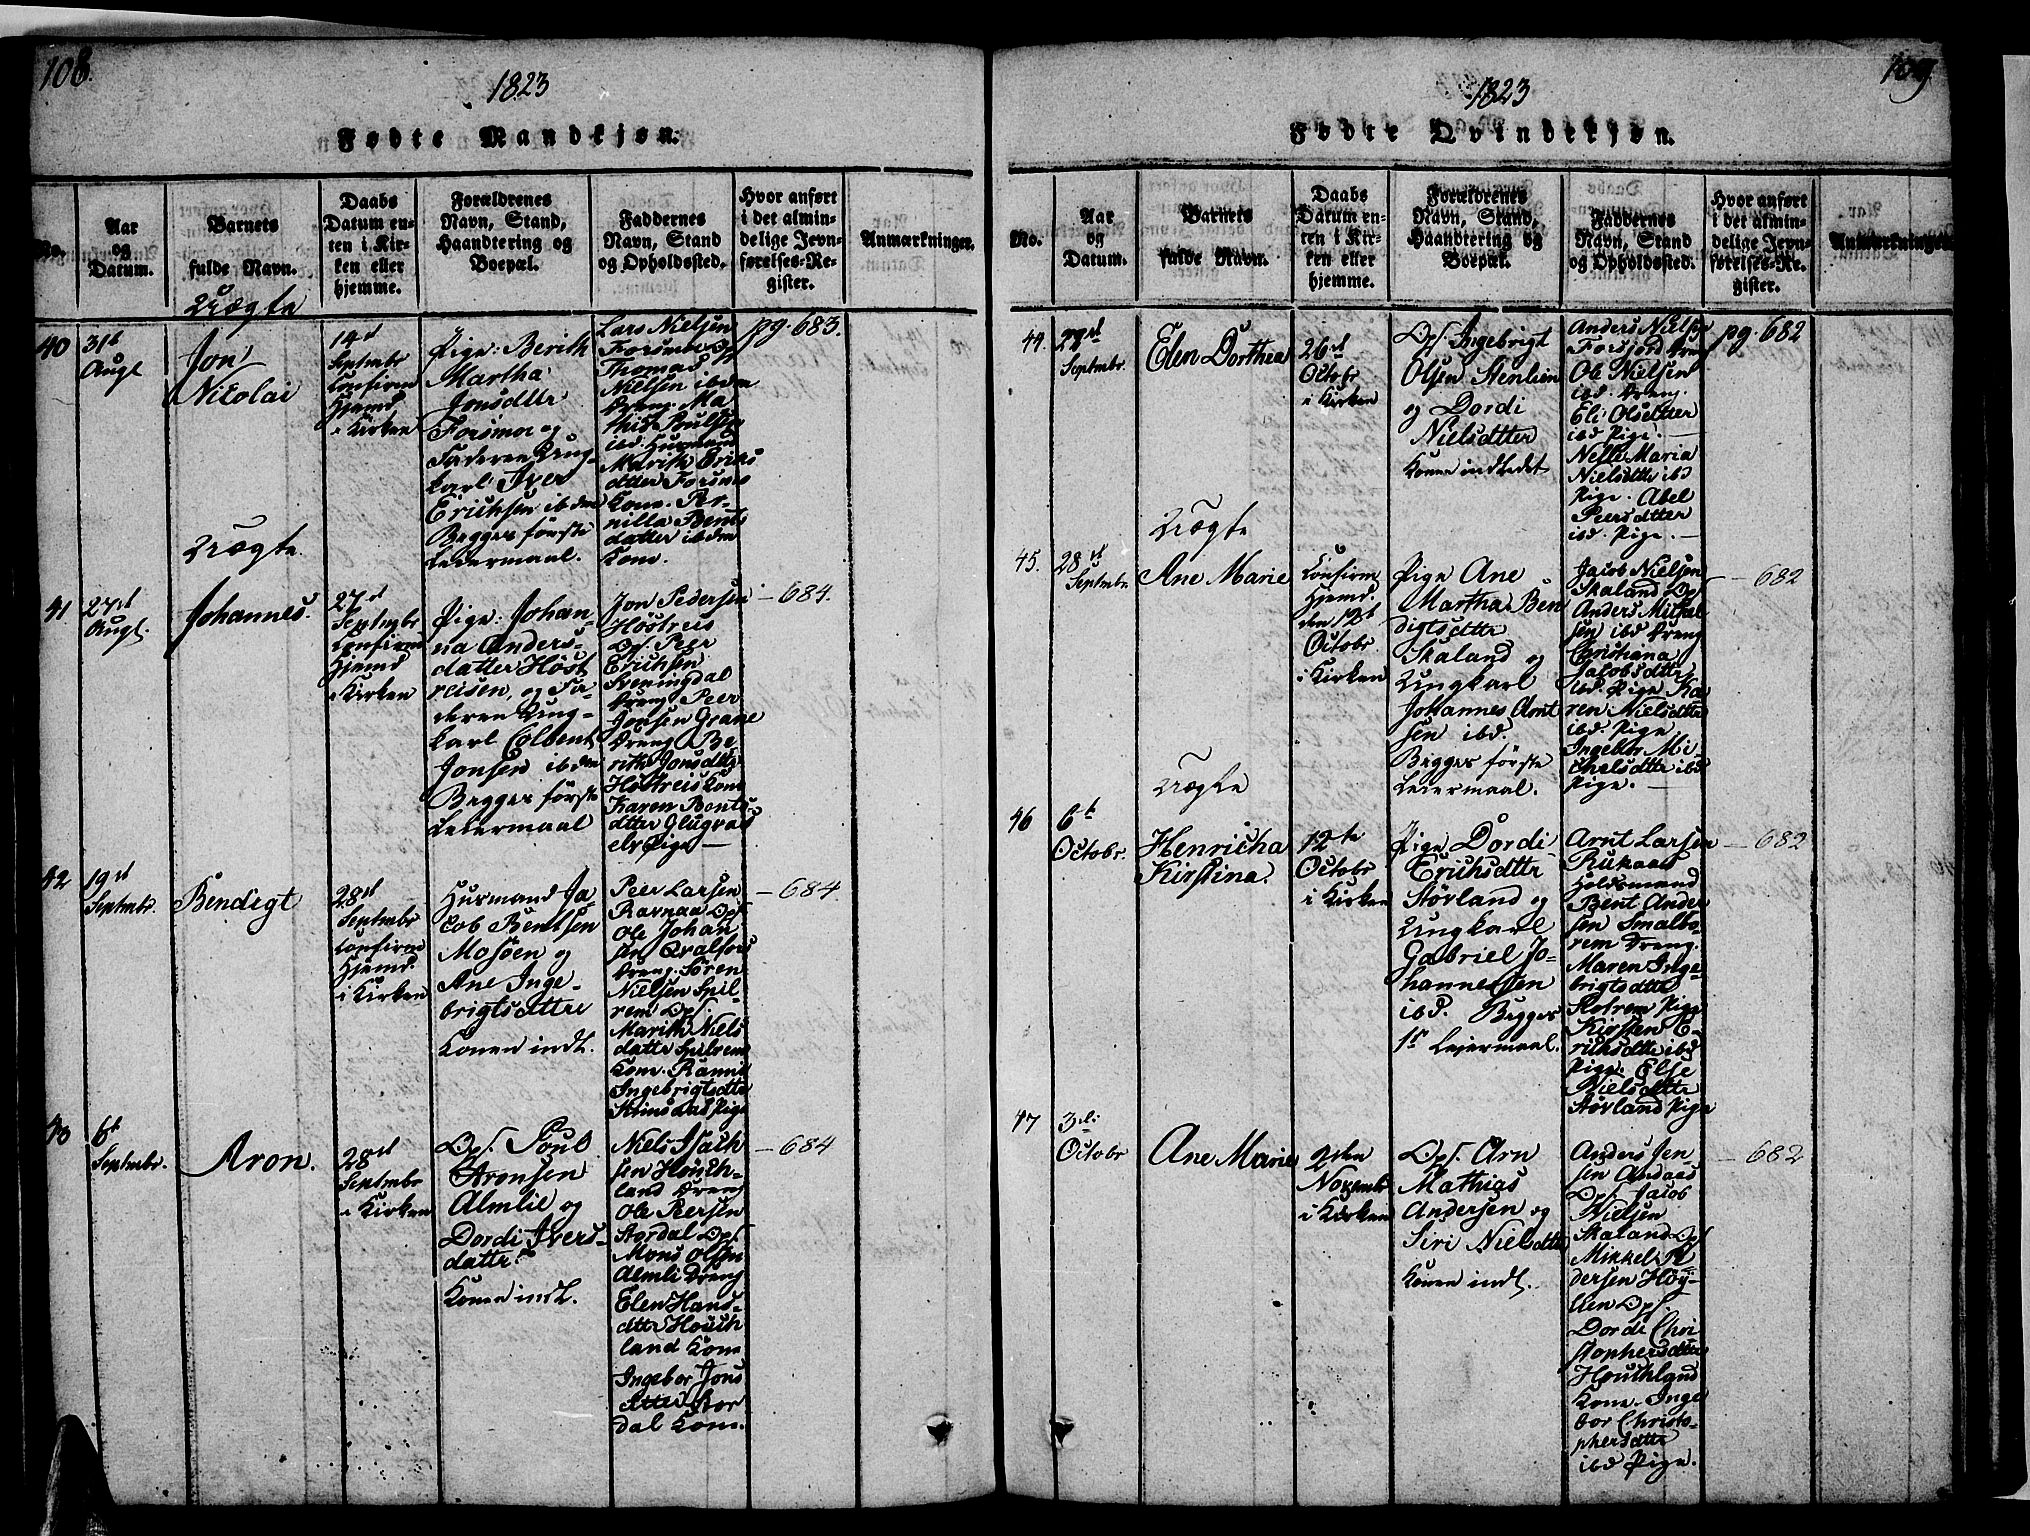 108.
1823
Fødte Mandkjøn.
No.
Aar
og
Datum.
Barnets
fulde Navn.
Daabs
Datum en-
ten i Kir-
ken eller
hjemme.
Forældrenes
Navn, Stand,
Haandtering og
Boepæl.
Faddernes
Navn, Stand
og Opholdssted.
Hvor anført
i det almin-
delige Jevn-
førelses-Re-
gister.
Anmærkninger.
Uægte
40
31t
Augt
Jon
Nicolai
14d
Septmbr
Confirm
Hjemd
i Kirken
Pige: Berith
Martha
Jonsdttr
Forsmoe og
Faderen Ung-
karl Iver
Erichsen ibden
Begges første
Leiermaal.
Lars Nielsen
Forsmoe Op
Thomas
Nielsen ibdem
Dreng. Ma
this Poulse
ibd. Husmand
Marith Eriks
dtter Forsmo
Kone. Per-
nilla Bents
datter ibdem
Kone.
pg. 683.
Uægte.
41
27d
Augt.
Johannes.
27d
Septmbr
Confirm
Hjemd
i Kirken
Pige: Johan-
na Anders-
datter Høst
reisen, og Fa-
deren Ung-
karl Colbent
Jonsen ibdem
Begges første
Leiermaal
Jon Pedersen
Höstreis
Ops. Peer
Erichsen
Sveningdal
Dreng Peer
Jonsen Grane
Dreng Be
rith Jonsdttr
Höstreis Kone
Karen Bents
dtter Glugvas
elv Pige —
— 684.
42
19d
Septmbr.
Bendigt
28d
Septmbr
Confirm
Hjemd.
i Kirken
Husmand Ja
cob Bentsen
Mosöen og
Ane Inge-
brigtsdttr
Konen indl.
Peer Larsen
Ravnaa Ops
Ole Johan
sen Qvalfors
Dreng. Sören
Nielsen Spil-
rem Ops.
Marith Niels
datter Spilrem
Kone. Ranna
Ingebrigtsdttr
Pige
— 684.
43
6t
Septmbr.
Aron.
28d
Septmbr
i Kirken
Ops. Poul
Aronsen
Almlie og
Dordi Ivers-
datter
Konen indl.
Niels Isach
sen Houth-
land Dreng
Ole Peersen
Stordal Ops.
Mons Olsen
Almli Dreng
Elen Hans-
dttr Houth
land Kone
Ingebor Jons
dtter Stor
dal Kone.
— 684
109
1823
Fødte Qvindekjøn.
No.
Aar
og
Datum.
Barnets
fulde Navn.
Daabs
Datum en-
ten i Kir-
ken eller
hjemme.
Forældrenes
Navn, Stand,
Haandtering og
Boepæl.
Faddernes
Navn, Stand
og Opholdssted.
Hvor anført
i det almin-
delige Jevn-
førelses-Re-
gister.
Anmærkninger
44.
Septmbr.
Elen Dorthea
26d
Octobr
i Kirken
Ops. Ingebrigt
Olsen Stenlien
og Dordi
Nielsdtter
Konen indledet
Anders Niels
Forsjord Dreng
Ole Nielsen
ibd. Dreng.
Eli Olsdtter
ibd Pige. —
Nelle Maria
Nielsdttr ibd
Pige. Abel
Peersdtter
ibd. Pige. —
pg. 682
Uægte
45.
28d
Septmbr.
Ane Marie
Confirm
Hjemd.
den 12t
Octobr
i Kirken
Pige Ane
Martha Ben
digtsdttr
Skaland og
Ungkarl
Johannes Arnt
sen ibd.
Begges første
Leiermaal.
Jacob Nielsen
Skaland Ops
Anders Michal
sen ibd Dreng
Christiana
Jacobsdttr
ibd. Pige Ka
ren Nielsdttr
ibd. Pige
Ingebor Mi-
chelsdttr ibd
Pige. —
— 682
Uægte
46
6t
Octobr.
Henricha
Kirstina.
12te
Octobr
i Kirken
Pige Dordi
Erichsdttr
Störland og
Ungkarl
Gabriel Jo-
hannessen
ibd. Begges
1st Leiermaal.
Arnt Larsen
Rukaas
Holdsmand
Bent Ander
sen Smalbo-
rem Dreng.
Maren Inge-
brigtsdttr
Slotrem Pige
Kirsten E-
richsdttr ibd
Pige. Else
Nielsdttr
Störland Pige
— 682
47
3die
Octobr
Ane Marie
2den
Novembr
i Kirken
Ops. Arn
Mathias
Andersen og
Siri Nielsdttr
Konen indl.
Anders Jen
sen Andaas
Ops. Jacob
Nielsen
Skaland Ops
Mikkel A
dersen Höy-
Ops.
Dordi Chri
stophersdttr
Houthland
Kone. Inge
bor Christo-
phersdttr
ibd Pige.
— 682